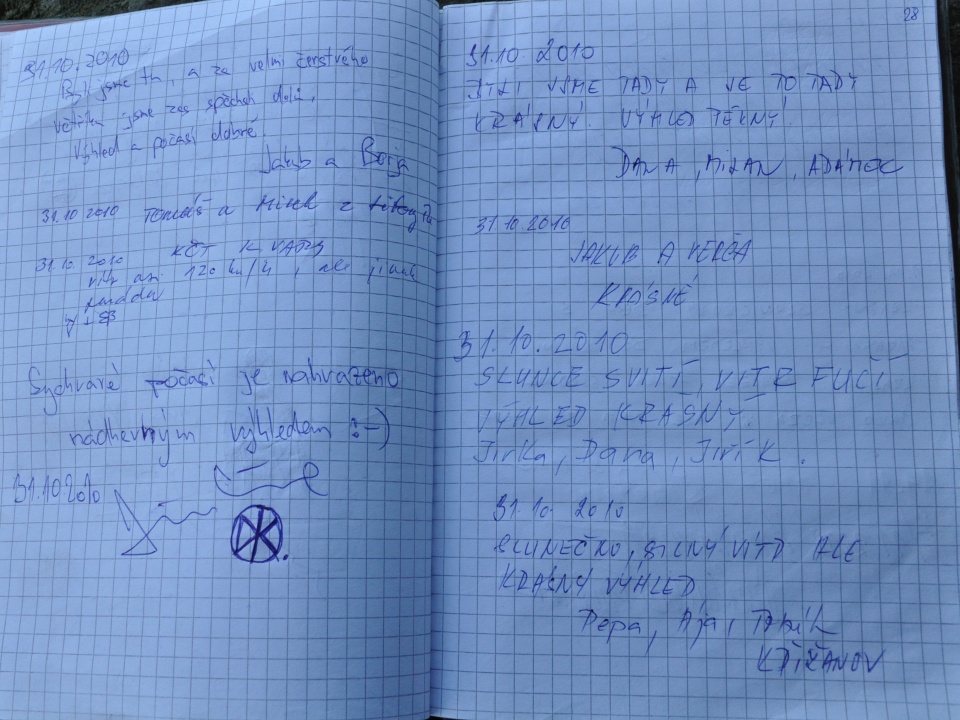 31.10.2010
Byli jsme tu, a za velmi čerstvého
větříku jsme zas spěchali dolů.
Výhled a počasí dobré.
Jakub a Borja
31.10 2010 Tomáš a Mirek z
31.10. 2010 KČT
vítr asi 120 km/h, ale jinak
paráda
Sychravé počasí je nahrazeno
nádherným výhledem :-)
31.10 2010
28
31.10. 2010
BYLI JSME TADY A JE TO TADY
KRÁSNÝ. VÝHLED PĚKNÝ
DANA, MILAN, ADÁMEK
31.10.2010
JAKUB A VERČA
KRÁSNÉ
31.10.2010
SLUNCE SVÍTÍ, VITR FUČÍ
VÝHLED KRÁSNÝ.
Jirka, Dana, Jiřík.
31.10. 2010
SLUNEČKO, SILNÝ VÍTR ALE
KRÁSNÝ VÝHLED
Pepa, Ája,
KŘIŽANOV